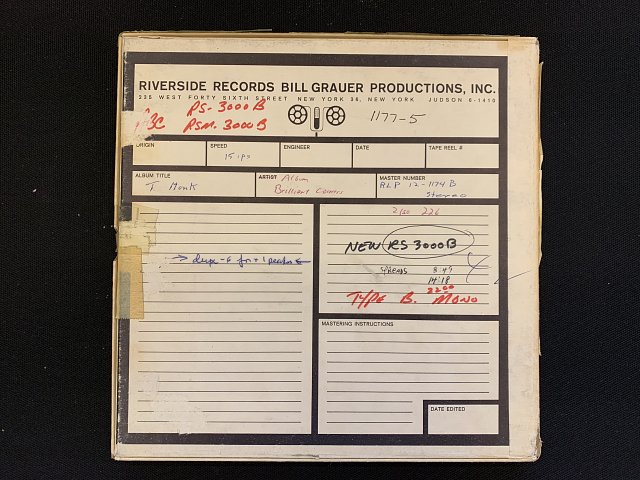 RIVERSIDE RECORDS BILL GRAUER PRODUCTIONS, INC.
235 WEST FORTY SIXTH STREET NEW YORK 36, NEW YORK JUDSON 6-1410
RS-3000B
RSM-3000B
1177-5
ORIGIN
SPEED
15 ips
ENGINEER
DATE
TAPE REEL #
ALBUM TITLE
T. Monk
ARTIST
Album
Brilliant Corners
MASTER NUMBER
RLP 12-1174 B
Stereo
226
NEW RS 3000B
→ dupe -6 for +1 peaks
8:47
14:18
2200
TYPE B. MONO
MASTERING INSTRUCTIONS
DATE EDITED